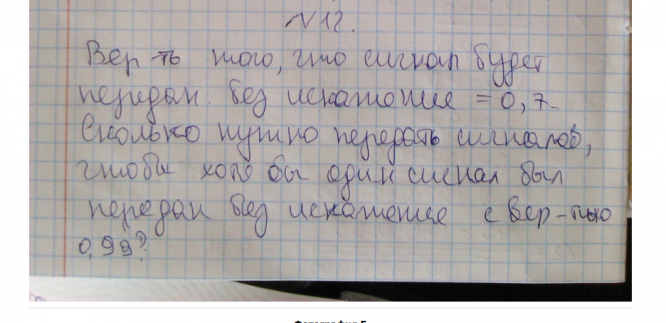 N12.
Вер-ть того, что сигнал будет
передан без искажение = 0,7.
Сколько нужно передать сигналов,
чтобы хотя бы один сигнал был
передан без искажение с вер-тью
0,99?